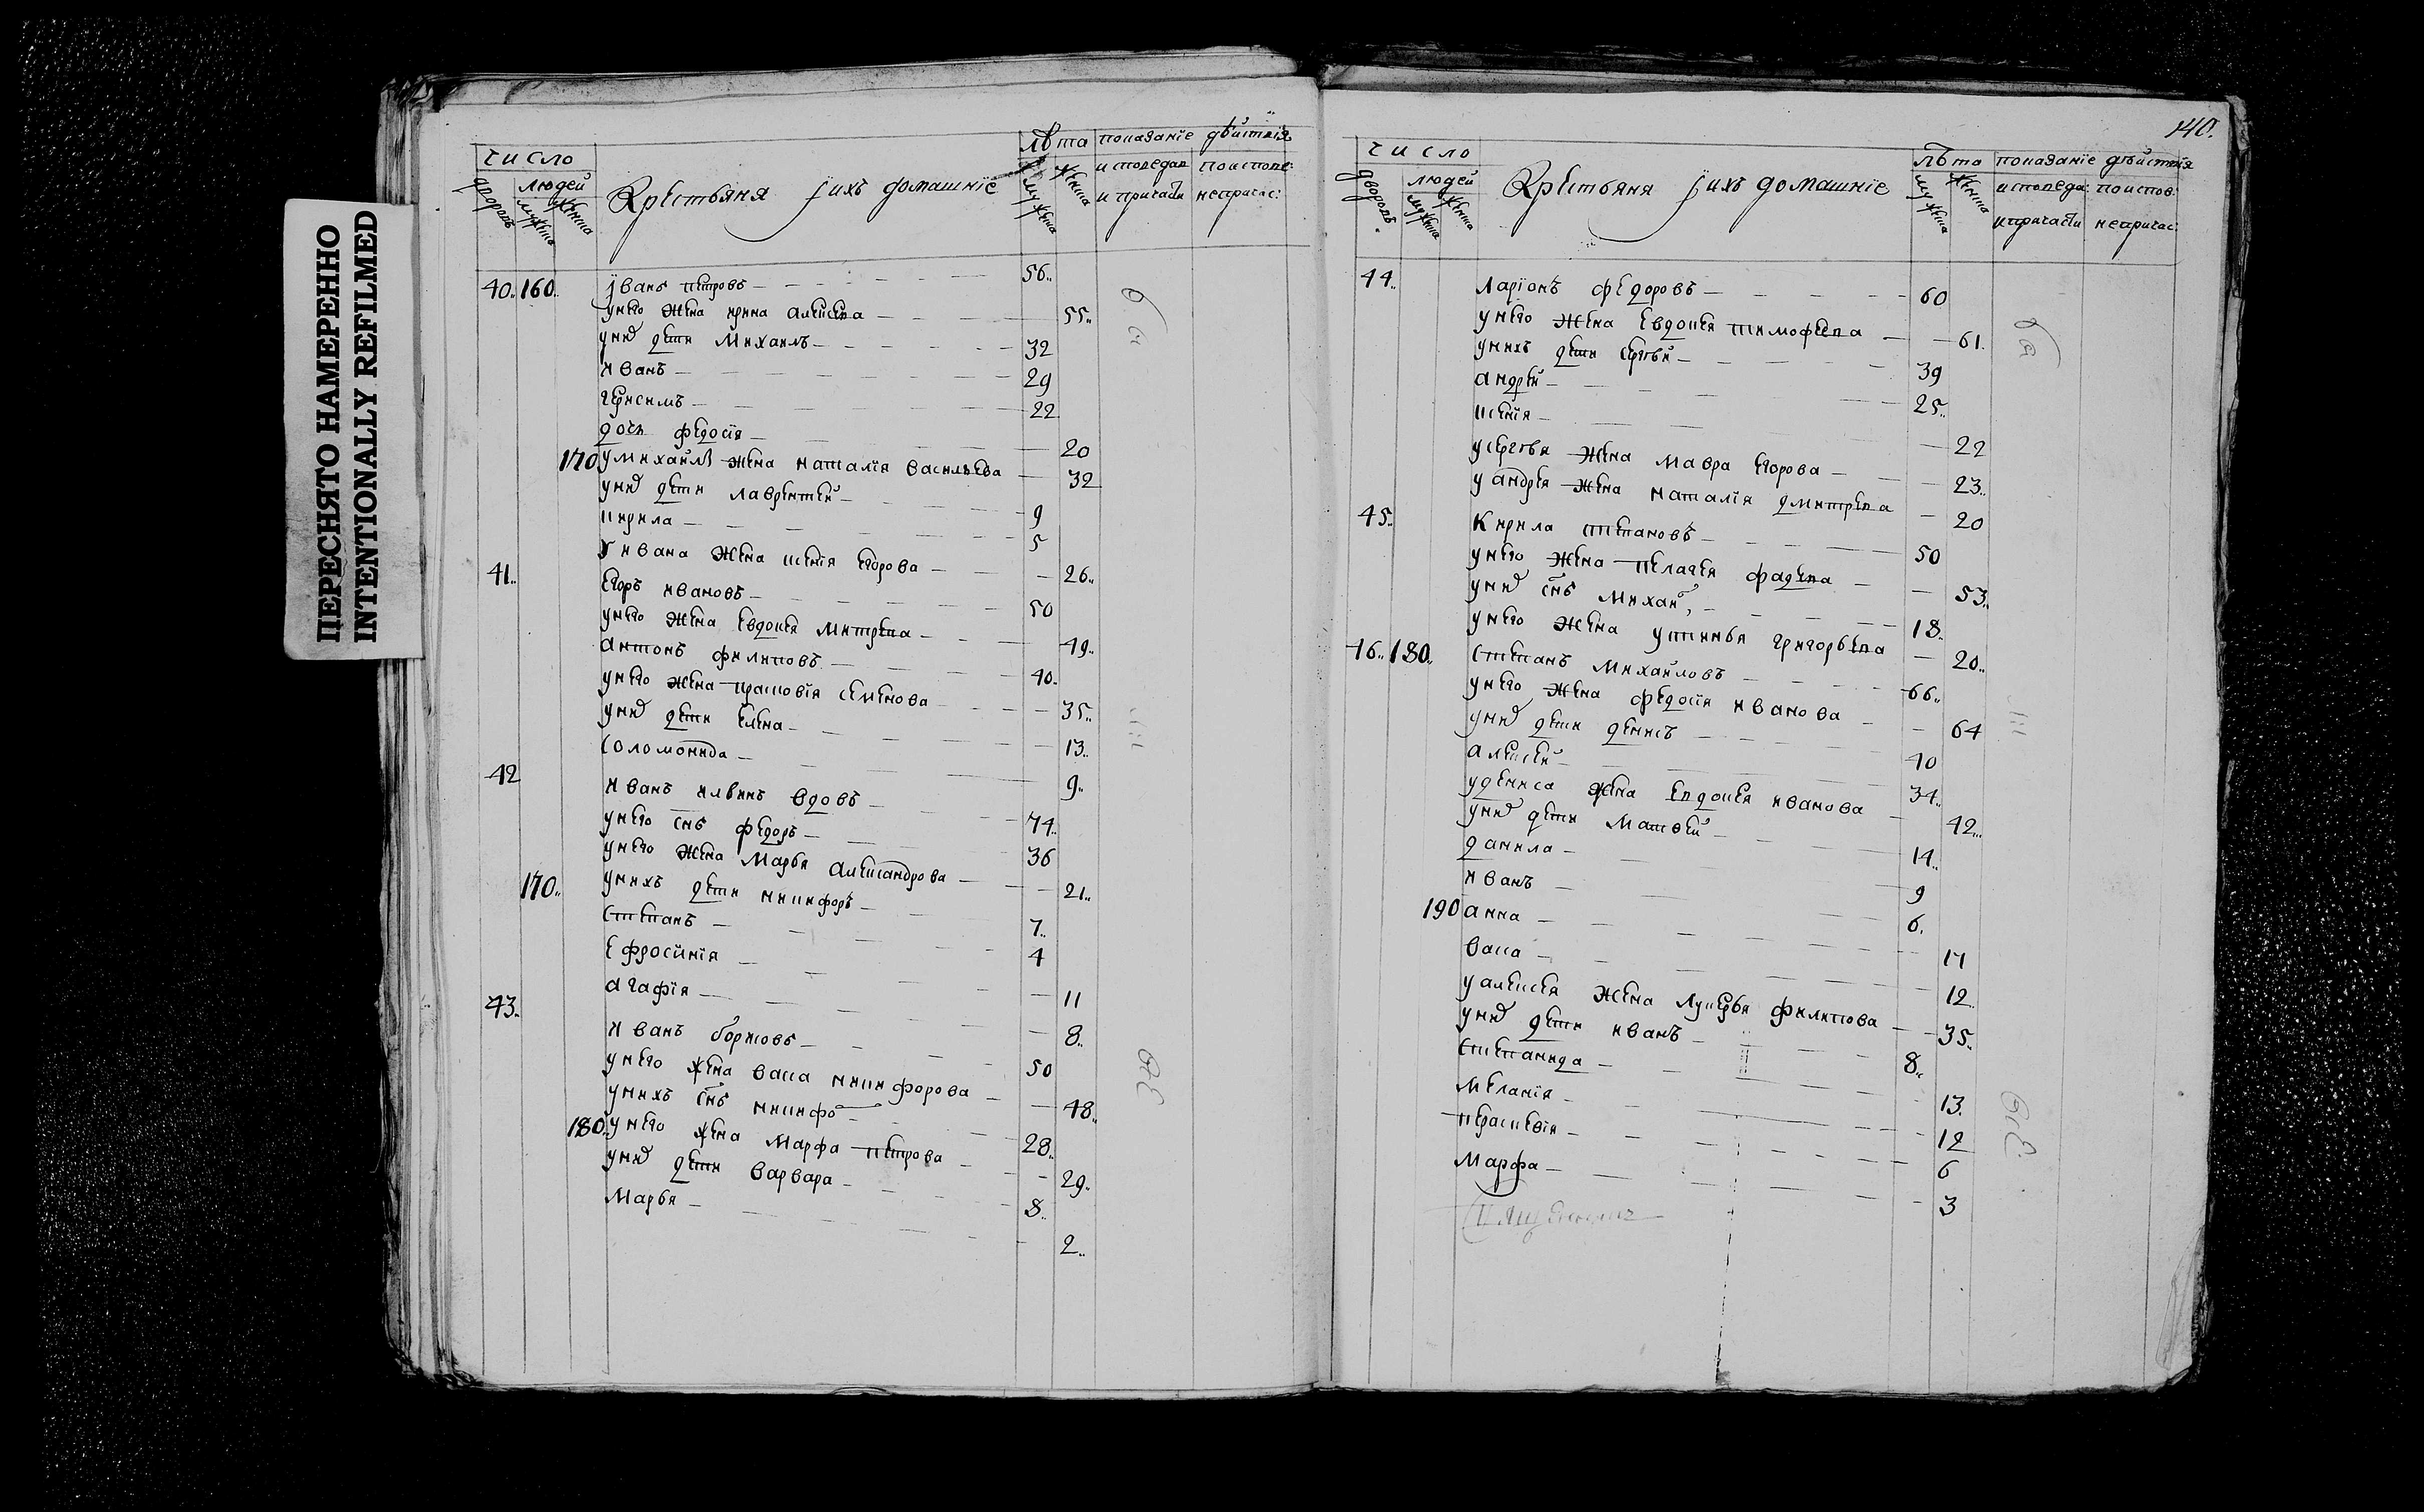 ПЕРЕСНЯТО НАМЕРЕННО
INTENTIONALLY REFILMED
число
дворовъ
людей
мужеска
женска
Крестьяня јихъ домашніе
лѣта
мужеска
женска
показаніе дѣйствія
исповедал поисповe:
и причасти непричас:
40.. 160.. јванъ петровъ 56..
унего жена ирина алексева 55..
уних дети Михаилъ 32
иванъ 29
герасимъ 22
дочь федосія 20
170 умихайлы жена наталія васильева 32
уних дети лаврентей 9
кирила 5
у ивана жена ксенія егорова 26..
41.. Егоръ ивановъ 50
унего жена Евдокея митрева 49..
антонъ филиповъ 40.
унего жена прасковія семенова 35..
уних дети елена 13..
соломонида 9..
42 иванъ ильинъ вдовъ 74.
унего снъ федоръ 36
унего жена Марья александрова 21..
170.. унихъ дети никифоръ 7..
степанъ 4
Ефросинія 11
агафія 8..
43.. иванъ борисовъ 50
унего жена васса никифорова 48..
унихъ снъ никифо 28..
180. унего жена Марфа петрова 29.
уних дети варвара 8..
Марья 2..
140.
число
дворовъ
людей
мужеска
женска
Крестьяня јихъ домашніе
лѣта
мужеска
женска
показаніе дѣйствія
исповеда: поиспов:
и причасти непричас:
44.. ларіонъ федоровъ 60
унего жена Евдокея тимофеева 61.
унихъ дети сергѣй 39
андрей 25..
ксенія 22
усергѣя жена Мавра егорова 23..
уандрея жена наталія дмитрева 20
45.. Кирила степановъ 50
унего жена пелагея фадеева 53..
уних снъ михай, 18..
унего жена устинья григорьева 20..
46.. 180.. степанъ михайловъ 66..
унего жена федосия иванова 64
уних дети денисъ 40
алексей 34..
удениса жена Евдокея иванова 42..
уних дети матвей 14..
данила 9
иванъ 6.
190 анна 17
васса 12
уалексея жена лукерья филипова 35..
уних дети иванъ 8..
степанида 13.
меланія 12
параскевія 6
марфа 3